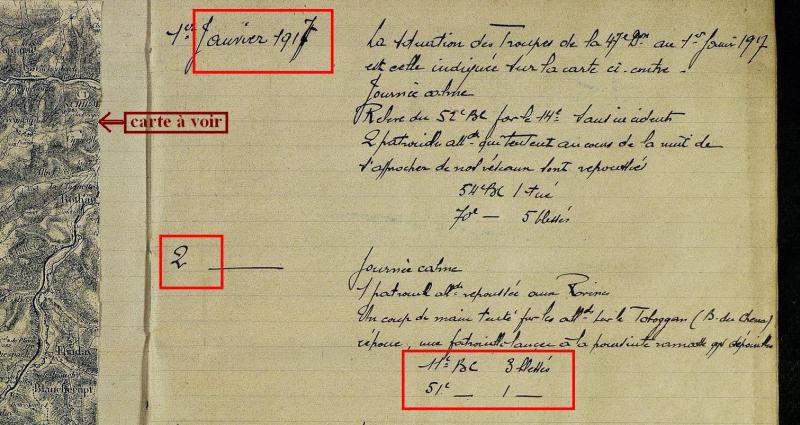 1er Janvier 1917
La situation des Troupes de la 47e Don au 1er Janvier 1917
est celle indiquée sur la carte ci-contre.
Journée calme
Relève du 52e BC par le 14e Sans incidents
2 patrouilles alldes qui tentent au cours de la nuit de
s'approcher de nos réseaux sont repoussées
54e BC 1 tué
70e — 5 blessés
carte à voir
Rothau
2 —
Journée calme
1 patrouille allde repoussée aux Ravines
Un coup de main tenté par les allds sur le Toboggan (B. du Chena)
échoue, une patrouille lancée à la poursuite ramasse qq dépouilles
11e BC 3 blessés
51e — 1 —
Blancherupt